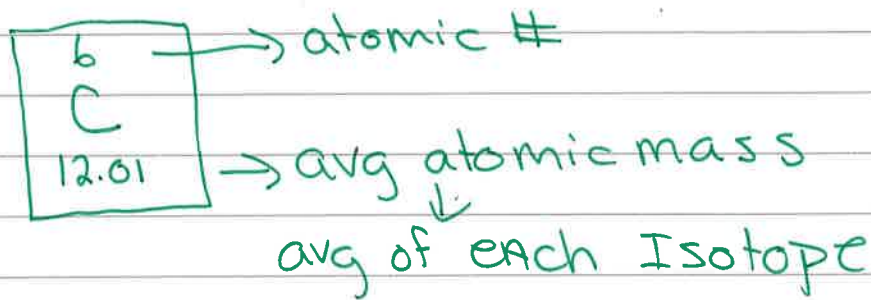 6 → atomic #
C
12.01 → avg atomic mass
↓
avg of each Isotope